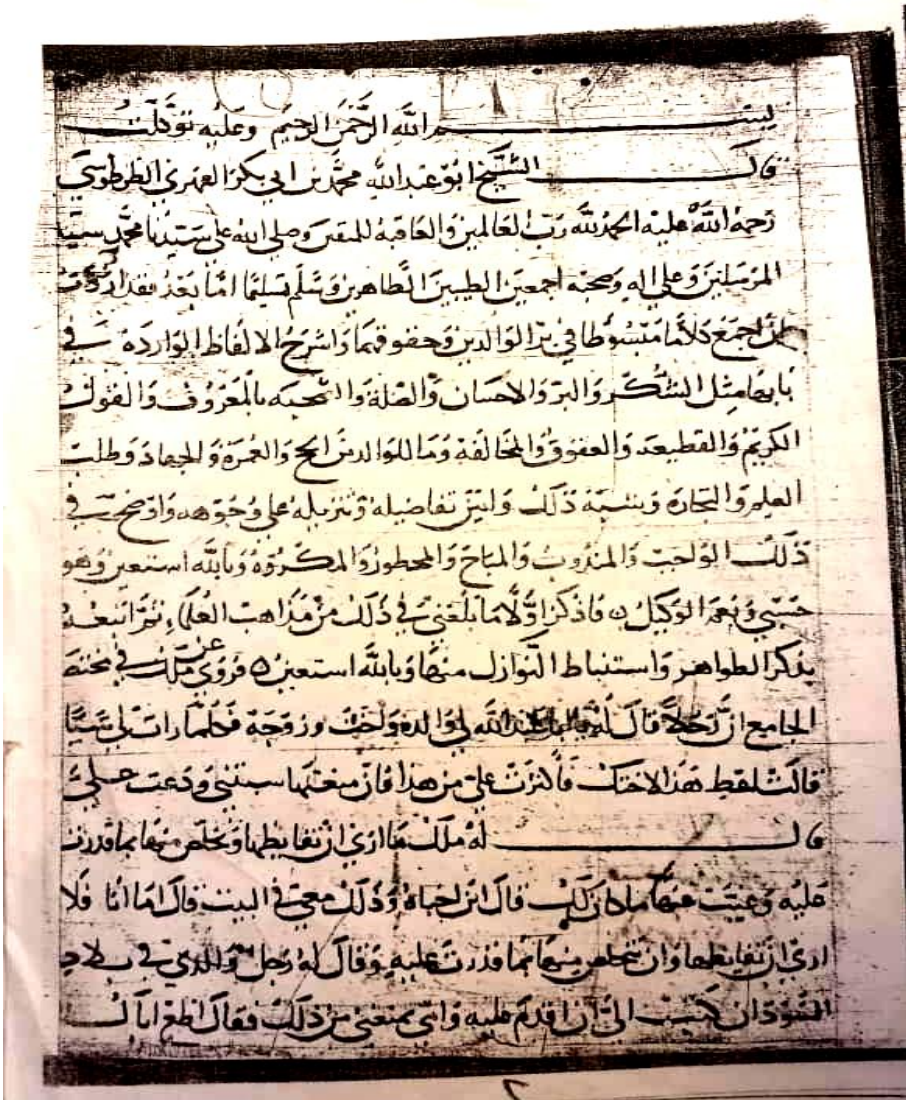 بسم الله الرحمن الرحيم وعليه توكلت
قال الشيخ ابو عبد الله محمد بن ابي بكر الفهري الطرطوسي
رحمة الله عليه الحمد لله رب العالمين والعاقبة للمتقين وصلى الله على سيدنا محمد سيد
المرسلين وعلى اله وصحبه اجمعين الطيبين الطاهرين وسلم تسليما اما بعد فقد اردت
ان اجمع كلاما مبسوطا في بر الوالدين وحقوقهما واشرح الالفاظ الواردة في
بابها مثل الشكر والبر والاحسان والصلة والصحبه بالمعروف والقول
الكريم والقطيعه والعقوق والمخالفة وما للوالدين الحج والعمرة والجهاد وطلب
العلم والتجارة ونسبة ذلك وابين تفاصيله وتنزيله على وجوهه واوضح في
ذلك الواجب والمندوب والمباح والمحظور والمكروه وبالله استعين وهو
حسبي ونعم الوكيل فاذكر اولا ما بلغني في ذلك من مذاهب العلماء ثم اتبعه
بذكر الظواهر واستنباط النوازل منها وبالله استعين فروي عن ملك في مختصر
الجامع ان رجلا قال له يا با عبد الله لي والدة واخت وزوجة فكلما رات لي شيا
قالت لقط هذا لاختك فاكثرت علي من هذا فان منعتها سبتني ودعت علي
قال له ملك ما اري ان تغايظها وتخلص منها بما قدرت
عليه وغيبت عنها ما كان لك قال اين اخباه وذلك معي في البيت قال اما انا فلا
اري ان تغايظها وان تتخلص منها بما قدرت عليه وقال له رجل والدي في بلاد
السودان كتب الي ان اقدم عليه وامي تمنعني من ذلك فقال اطع اباك
٢